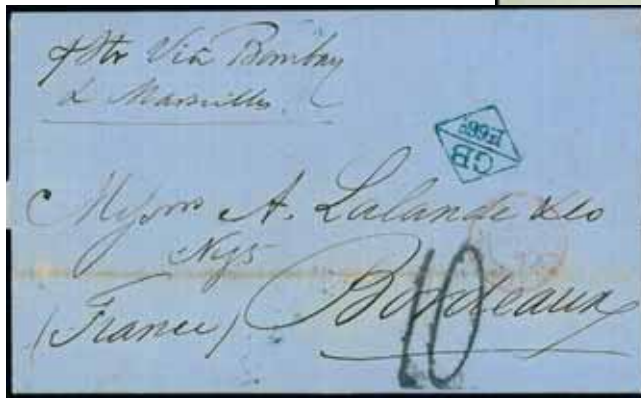 p Str Via Bombay
& Marseilles
GB
1F.66c
Messrs A. Lalande & Co
Ngts
Bordeaux
(France)
10